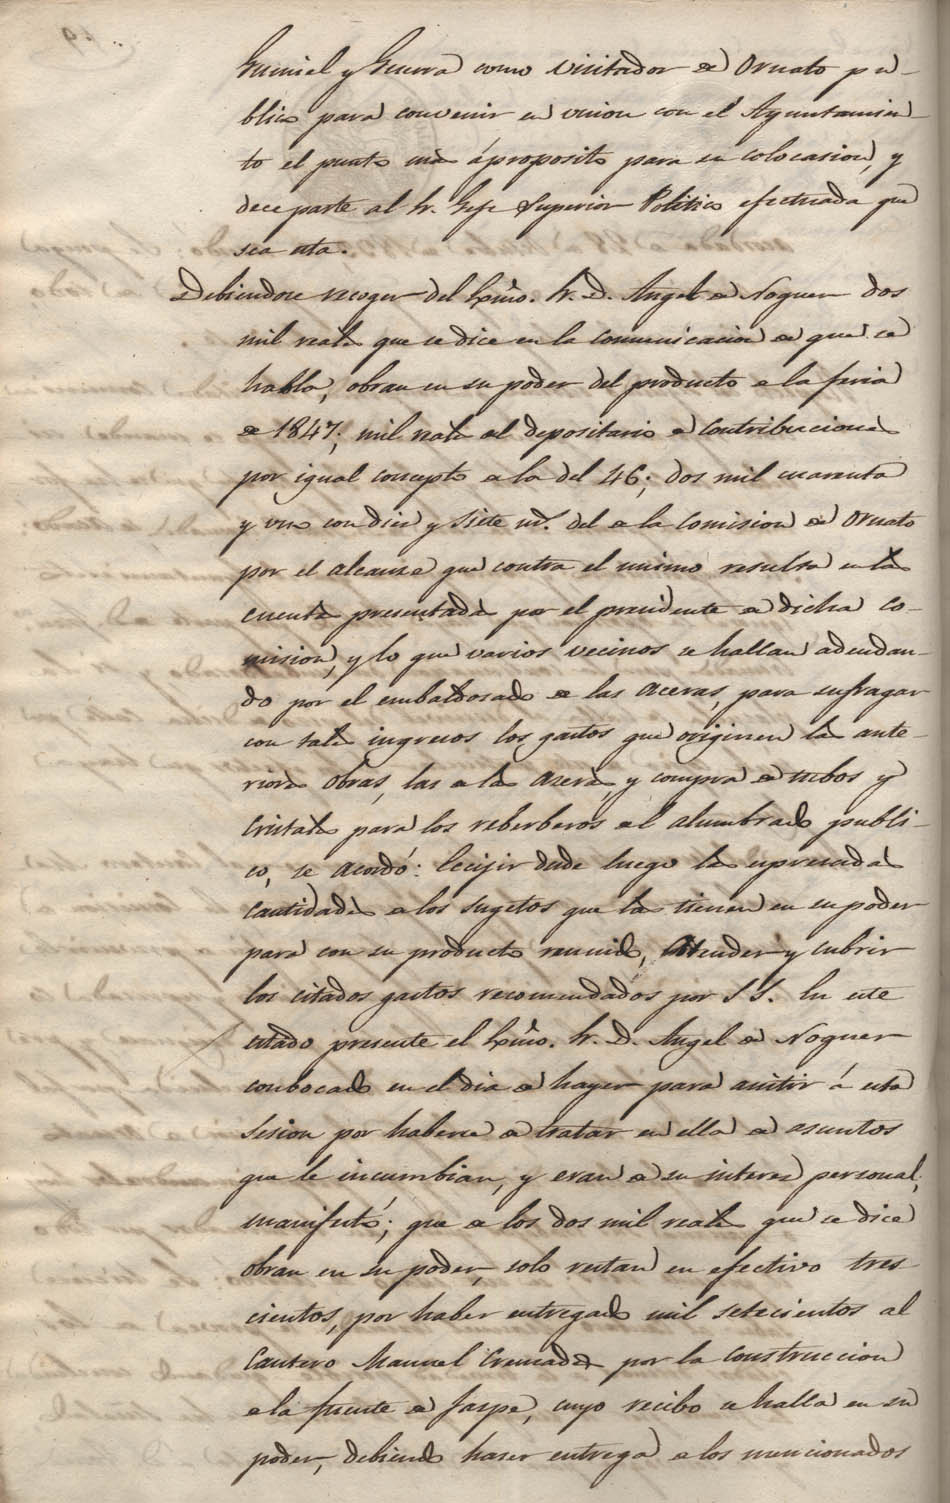 Gumiel y Guerra como visitador de Ornato pu-
blico para convenir en union con el Ayuntamien-
to el punto mas áproposito para su colocasion, y
dece parte al Sr. Gefe Superior Politico efectuada que
sea esta.
Debiendose recoger del Exmo. Sr. D. Angel de Noguer dos
mil reales que se dice en la comunicacion de que se
habla, obran en su poder del producto de la feria
de 1847; mil reales del depositario de Contribuciones
por igual concepto de la del 46; dos mil cuarenta
y uno con diez y siete ms. del de la Comision de Ornato
por el alcanze que contra el mismo resulta en las
cuentas presentadas por el presidente de dicha Co-
mision, y lo que varios vecinos se hallan adeudan-
do por el embaldosado de las aceras, para sufragar
con tales ingresos los gastos que originen las ante-
riores obras, las de las aceras, y compra de tubos y
cristales para los reberberos del alumbrado publi-
co, se acordó: Ecsijir desde luego las espresadas
cantidades de los sugetos que las tienen en su poder
para con su producto reunido, atender y cubrir
los citados gastos recomendados por S. S. En este
estado presente el Exmo. Sr. D. Angel de Noguer
conbocado en el dia de hayer para asistir á esta
sesion por haberse de tratar en ella de asuntos
que le incumbian, y eran de su interes personal,
manifestó; que de los dos mil reales que se dice
obran en su poder, solo restan en efectivo tres-
cientos, por haber entregado mil setecientos al
Cantero Manuel Cremades por la construccion
de la fuente de Jaspe, cuyo recibo se halla en su
poder, debiendo haser entrega de los mencionados